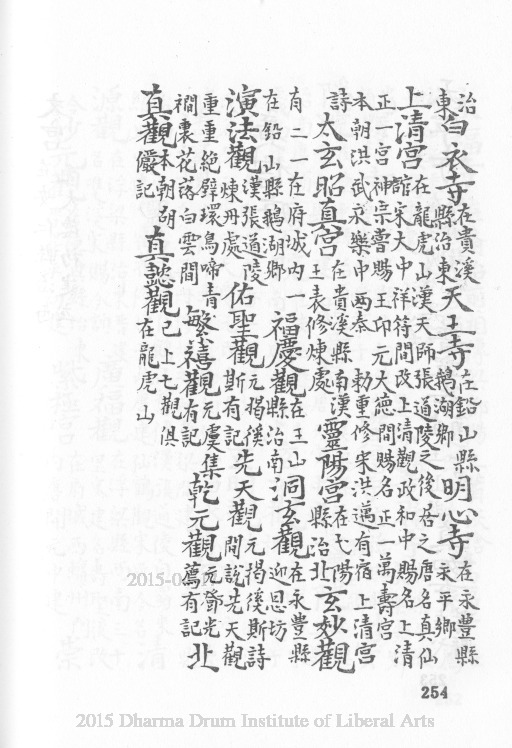 治東白衣寺在貴溪縣治東天王寺在鉛山縣鵝湖鄉明心寺在永豐縣永平鄉
上清宮在龍虎山漢天師張道陵之後居之唐名真仙館宋大中祥符間改上清觀政和中賜名上清
正一宮神宗嘗賜玉印元大德間賜名正一萬壽宮本朝洪武永樂中兩奉 勅重修宋洪邁有宿上清宮
詩 太玄昭真宮在貴溪縣南漢王表修煉處靈陽宮在弋陽縣治北玄妙觀
有二一在府城內一在鉛山縣鵝湖鄉福慶觀在玉山縣治南洞玄觀在永豐縣迎恩坊
演法觀漢張道陵煉丹處佑聖觀元揭傒斯有記先天觀元揭傒斯詩間訪先天觀
重重絕壁環鳥啼青澗裏花落白雲間繁禧觀元虞集有記乾元觀元鄧光薦有記北
真觀本朝胡儼記 真懿觀已上七觀俱在龍虎山
254
2015 Dharma Drum Institute of Liberal Arts